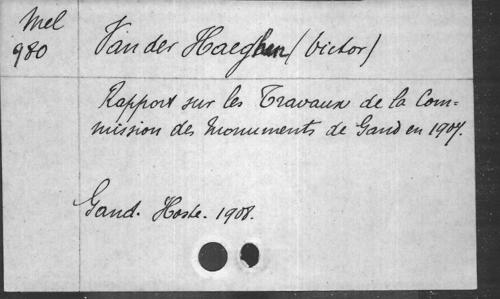 Mel
980
Vander Haeghen (Victor)
Rapport sur les Travaux de la Com-
mission des Monuments de Gand en 1907.
Gand. Hoste. 1908.